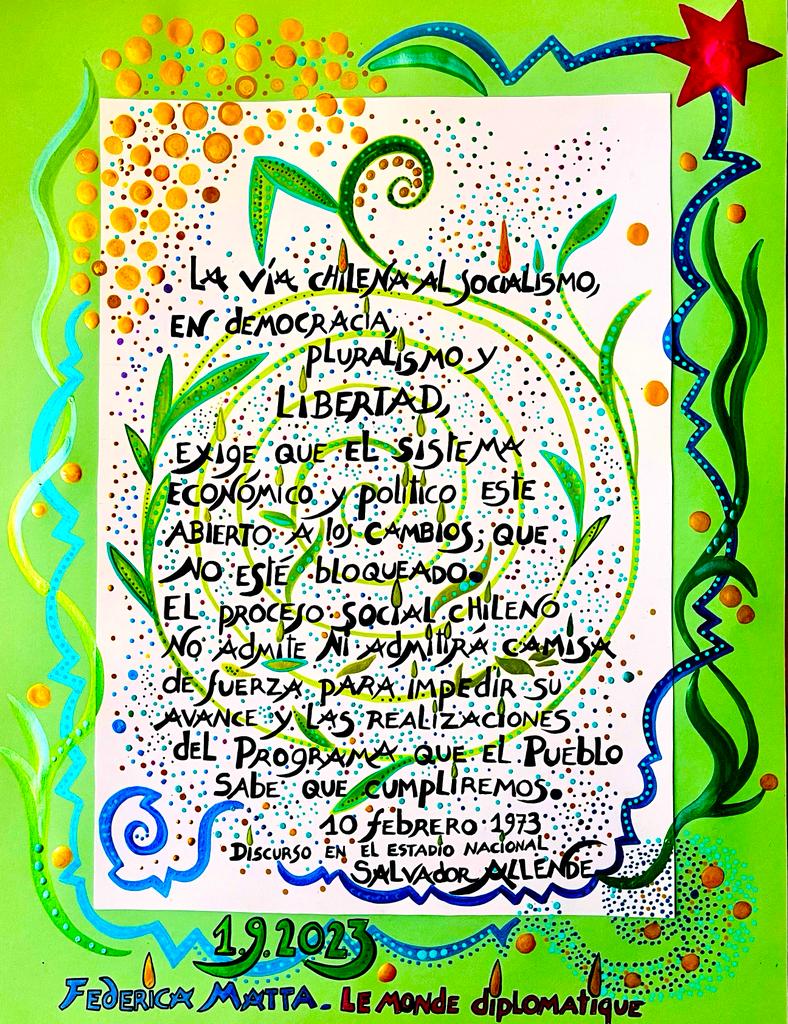 LA VÍA CHILENA AL SOCIALISMO,
EN DEMOCRACIA,
PLURALISMO Y
LIBERTAD,
EXIGE QUE EL SISTEMA
ECONÓMICO y político ESTE
ABIERTO A los CAMBIOS, QUE
NO ESTÉ bloQUEADO.
EL PROCESO SOCIAL CHILENO
NO ADMITE NI ADMITIRÁ CAMISA
de fUERZA PARA IMPEDIR SU
AVANCE Y LAS REALIZACIONES
del PROGRAMA QUE EL PUEBLO
SABE QUE CUMPLIREMOS.
10 febRERO 1973
DISCURSO EN EL ESTADIO NACIONAL
SALVADOR ALLENDE
1.9.2023
FEDERICA MATTA - LE MONDE diplOMATIQUE